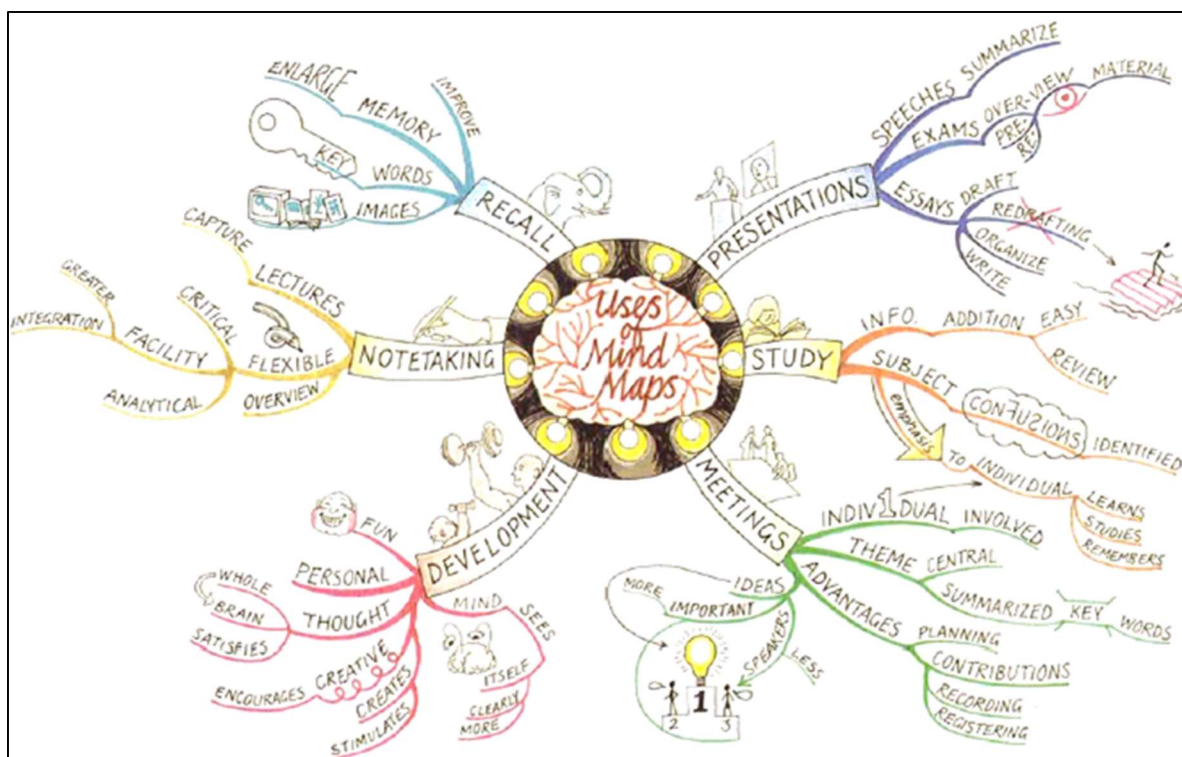 Uses
of
Mind
Maps
RECALL
IMPROVE
MEMORY
ENLARGE
WORDS
KEY
IMAGES
PRESENTATIONS
SPEECHES SUMMARIZE
EXAMS OVER-VIEW MATERIAL
PRE-
RE-
ESSAYS DRAFT
REDRAFTING
ORGANIZE
WRITE
STUDY
INFO. ADDITION EASY
REVIEW
SUBJECT CONFUSIONS IDENTIFIED
emphasis
TO INDIVIDUAL LEARNS
STUDIES
REMEMBERS
MEETINGS
INDIV1DUAL INVOLVED
THEME CENTRAL
SUMMARIZED KEY WORDS
ADVANTAGES PLANNING
CONTRIBUTIONS
RECORDING
REGISTERING
IDEAS
MORE
IMPORTANT
SPEAKERS LESS
1
2
3
DEVELOPMENT
FUN
PERSONAL
THOUGHT
WHOLE
BRAIN
SATISFIES
CREATIVE
ENCOURAGES
CREATES
STIMULATES
MIND SEES
ITSELF
CLEARLY
MORE
NOTETAKING
LECTURES
CAPTURE
FLEXIBLE
CRITICAL
FACILITY
GREATER
INTEGRATION
ANALYTICAL
OVERVIEW